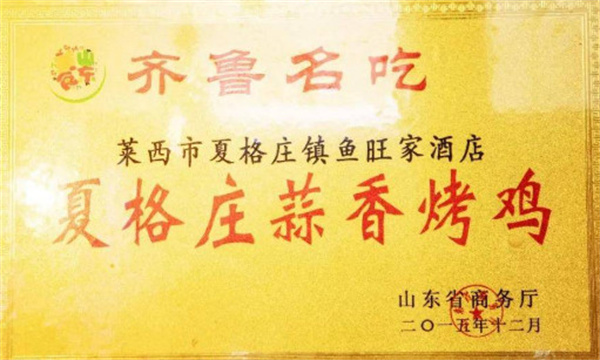 齐鲁名吃
莱西市夏格庄镇鱼旺家酒店
夏格庄蒜香烤鸡
山东省商务厅
二〇一五年十二月